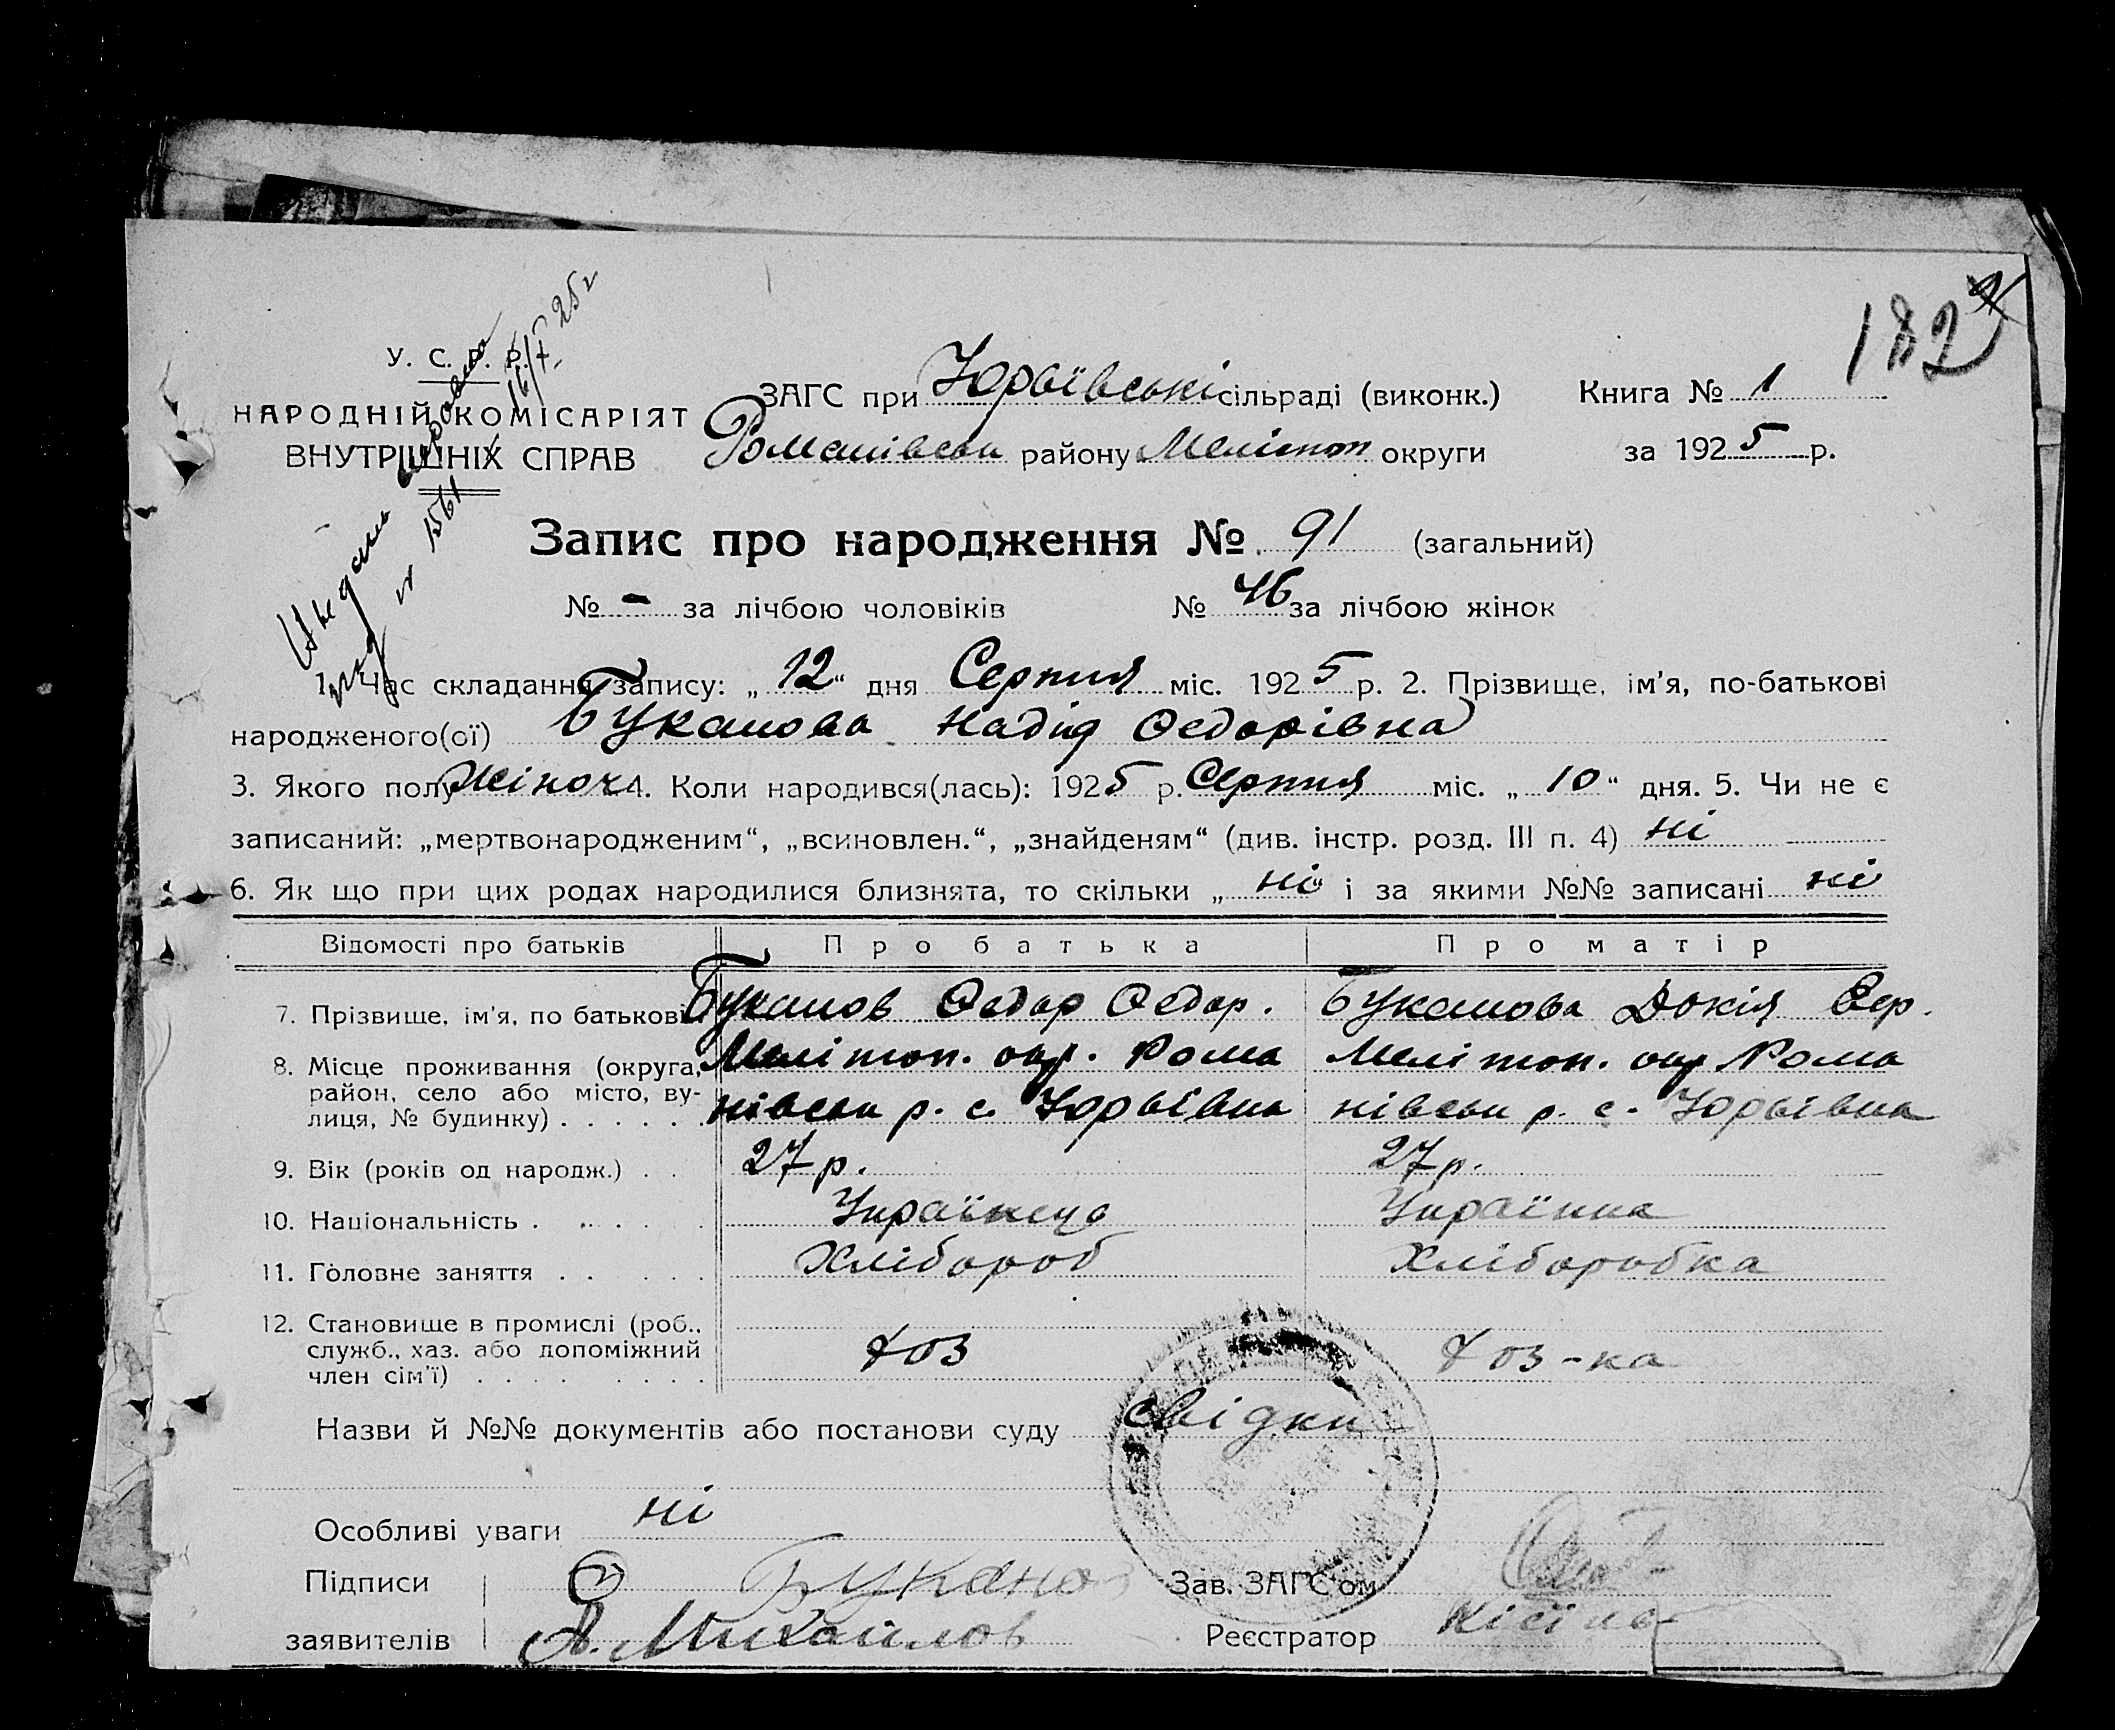 182
У. С. Р. Р.
НАРОДНІЙ КОМІСАРІЯТ
ВНУТРІШНІХ СПРАВ
ЗАГС при Юрьївські сільраді (виконк.) Книга № 1
Романівськ району Меліноп округи за 1925 р.
Запис про народження № 91 (загальний)
№ - за лічбою чоловіків № 46 за лічбою жінок
1. Час складання запису: „12“ дня Серпня міс. 1925 р. 2. Прізвище, ім'я, по-батькові
народженого(ої) Буканова Надія Федорівна
3. Якого полу Жіноч 4. Коли народився(лась): 1925 р. Серпня міс. „10“ дня. 5. Чи не є
записаний: „мертвонародженим“, „всиновлен.“, „знайденям“ (див. інстр. розд. III п. 4) ні
6. Як що при цих родах народилися близнята, то скільки „ні“ і за якими №№ записані ні
Відомості про батьків Про батька Про матір
7. Прізвище, ім'я, по батькові Буканов Федор Федор. Буканова Докія Сер.
8. Місце проживання (округа, Меліноп. окр. Рома Меліноп. окр Рома
район, село або місто, ву- нівськ р. с. Юрьївка нівськ р. с. Юрьївка
лиця, № будинку) . . . . . .
9. Вік (років од народж.) . . 27 р. 27 р.
10. Національність . . . . . . Українець Українка
11. Головне заняття . . . . . Хлібороб Хліборобка
12. Становище в промислі (роб.,
служб., хаз. або допоміжний хоз хоз-ка
член сім'ї) . . . . . . . .
Назви й №№ документів або постанови суду свідки
Особливі уваги ні
Підписи Ф Буканов Зав. ЗАГС'ом
заявителів А. Михайлов Реєстратор